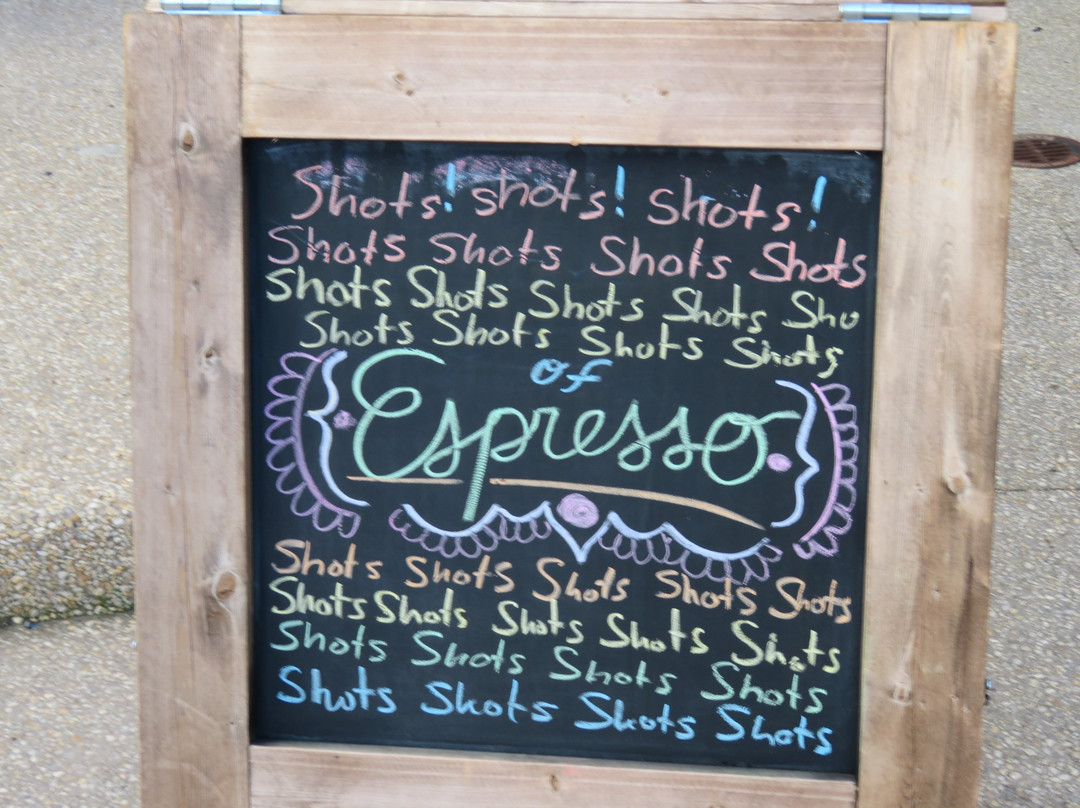 Shots! shots! shots!
Shots Shots Shots Shots
Shots Shots Shots Shots Sho
Shots Shots Shots Shots
of
Espresso
Shots Shots Shots Shots Shots
Shots Shots Shots Shots Shots
Shots Shots Shots Shots
Shots Shots Shots Shots